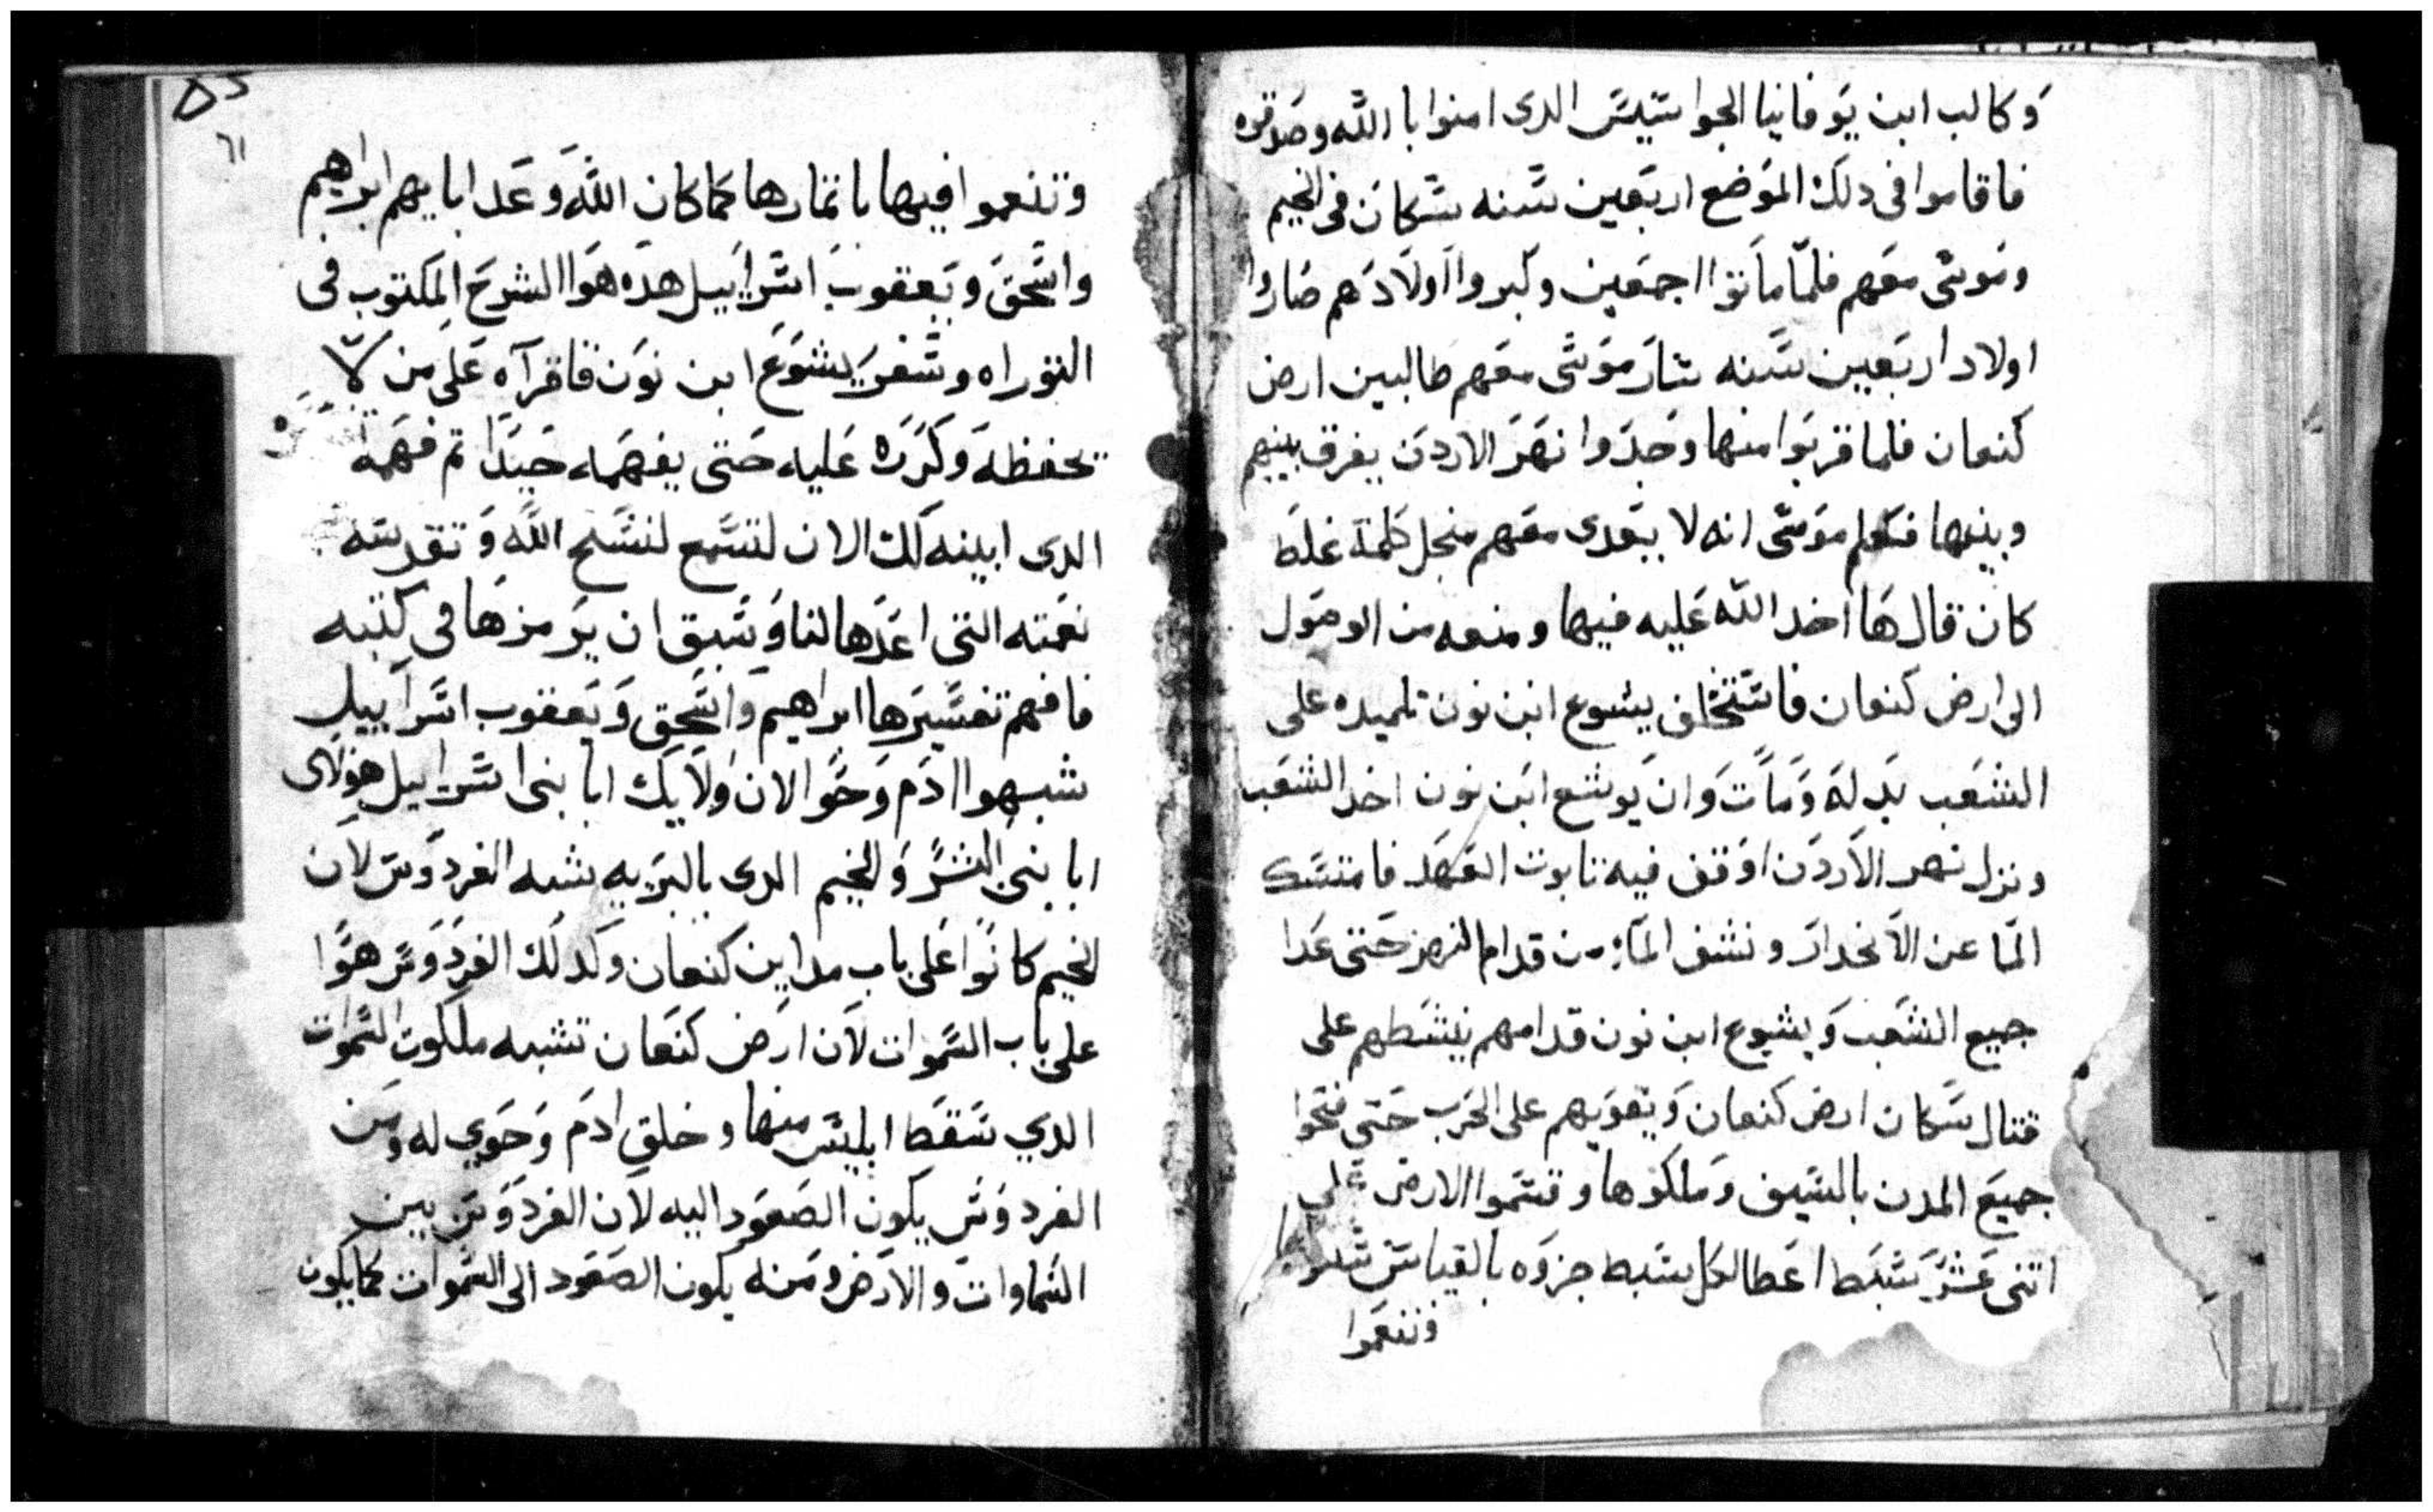 وكالب ابن يوفانيا الجواسيس الدى امنوا با الله وصدقوه
فاقاموا فى دلك الموضع اربعين سنه سكان فى الخيم
وموسى معهم فلما ماتوا اجمعين وكبروا اولادهم صاروا
اولاد اربعين سنه سار موسى معهم طالبين ارض
كنعان فلما قربوا منها وجدوا نهر الاردن يفرق بينهم
وبينها فكلم موسى انه لا يتعدى معهم منجل كلمة غلط
كان قالها اخد الله عليه فيها ومنعه من الوصول
الى ارض كنعان فاستخلف يشوع ابن نون تلميده على
الشعب بدله ومات وان يوشع ابن نون اخد الشعب
ونزل نهر الاردن اوقف فيه تابوت العهد فامتسك
الما عن الانحدار ونشف الماء من قدام النهر حتى عدا
جميع الشعب ويشوع ابن نون قدامهم ينشطهم على
قتال سكان ارض كنعان ويقويهم على الحرب حتى فتحوا
جميع المدن بالسيف وملكوها وقسموا الارض على
اتنى عشر سبط اعطا لكل سبط جزوه بالقياس
وتنعموا
٦١
وتنعموا فيها باتمارها كما كان الله وعد ابايهم ابراهيم
واسحق ويعقوب اسراييل هده هوا الشرح المكتوب فى
التوراه وسفر يشوع ابن نون فاقرآه على من لا
يحفظه وكرره عليه حتى يفهمه جيدا تم فهمه
الدى ابينه لك الان لتسمع لتسبح الله وتقدسه
نعمته التى اعدها لنا وسبق ان يرمزها فى كتبه
فافهم تفسيرها ابراهيم واسحق ويعقوب اسراييل
شبهوا ادم وحوا الان ولايك ابا بنى اسراييل هولاى
ابا بنى البشر والخيم الدى بالبريه يشبه الفردوس لان
الخيم كانوا على باب مداين كنعان وكدلك الفردوس هوا
على باب السموات لان ارض كنعان تشبه ملكوت السموات
الدي سقط ابليس منها وخلق ادم وحوي له ومن
الفردوس يكون الصعود اليه لان الفردوس بين
السماوات والارض ومنه يكون الصعود الى السموات كما يكون